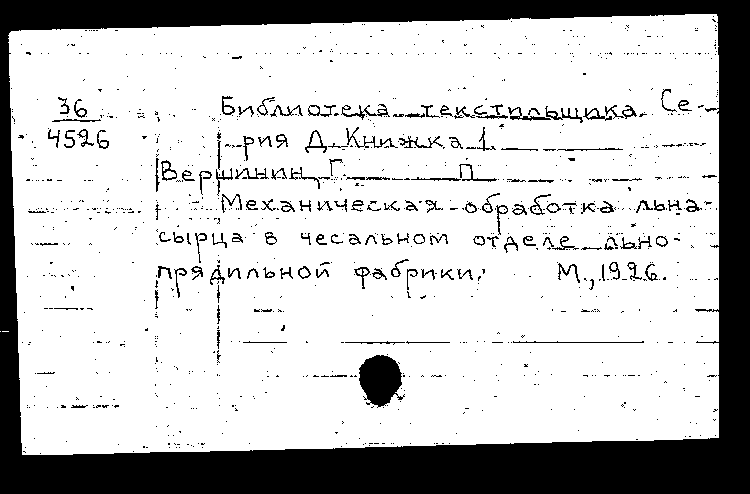 36
4526
Библиотека текстильщика. Се-
рия Д. Книжка 1.
Вершинин, Г. П.
Механическая обработка льна-
сырца в чесальном отделе льно-
прядильной фабрики. М., 1926.